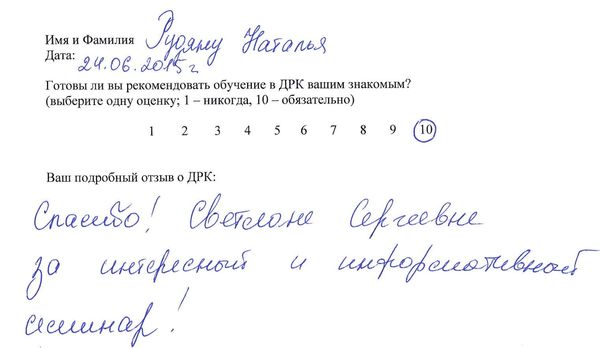 Имя и Фамилия Рудяну Наталья
Дата: 24.06.2015г
Готовы ли вы рекомендовать обучение в ДРК вашим знакомым?
(выберите одну оценку; 1 – никогда, 10 – обязательно)
1 2 3 4 5 6 7 8 9 10
Ваш подробный отзыв о ДРК:
Спасибо! Светлане Сергеевне
за интересный и информативный
семинар!